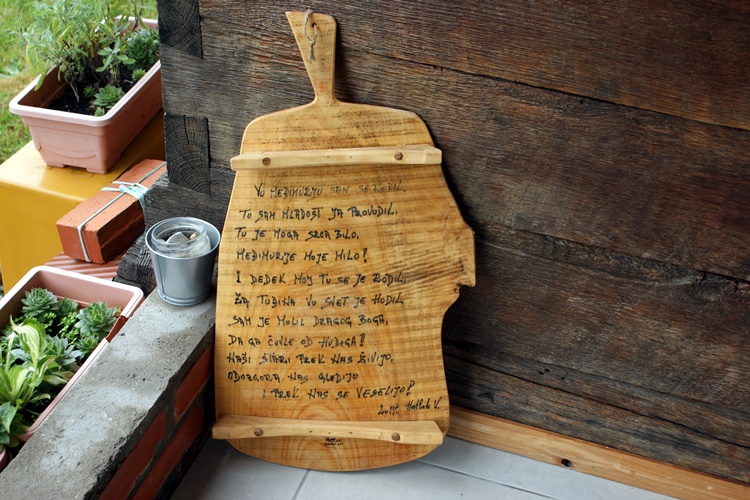 VU MEĐIMURJU SAM SE RODIL,
TO SAM MLADOST JA PROVODIL,
TU JE MOGA SRCA BILO,
MEĐIMURJE MOJE MILO!
I DEDEK MOJ TU SE JE RODIL,
ŽA TUĐINA VU SVET JE HODIL
SAM JE MOLIL DRAGOG BOGA,
DA GA ČUVLE OD HUDOGA!
NAŠI STARI PREK NAS ŽIVIJO,
ODOZGORA NAS GLEDIJO
I PREK NAS SE VESELIJO!
V.